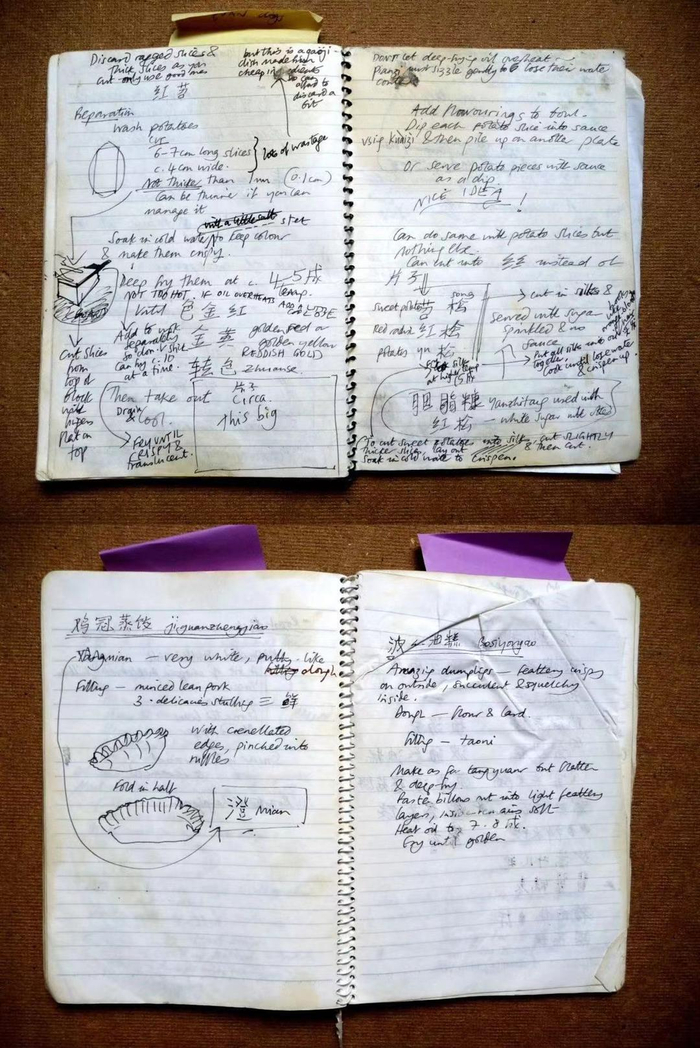 Discard ragged slices &
thick slices as you
cut - only use good ones
but this is a gaoji
dish made from
cheap ingredients
so can
afford to
discard a
bit
红苕
Preparation
Wash potatoes
Cut
6-7cm long slices
c. 4cm wide.
lots of wastage
Not Thicker than 1mm (0.1cm)
Can be thinner if you can
manage it
with a little salt
Soak in cold water to keep colour
& make them crispy.
Deep fry them at c. 4-5成
NOT TOO HOT. IF OIL OVERHEATS
ADD
until 色金红
Add to wok
separately
so don't stick
Can fry c. 10
at a time.
golden red or
golden yellow
REDDISH GOLD
转色 zhuanse
Cut slices
from
top of
block
with
flat on
top
Then take out
Drain
& cool.
FRY UNTIL
CRISPY &
translucent.
片子
Circa.
this big
Don't let deep-frying oil overheat -
must sizzle gently to lose their water
Add flavourings to bowl.
Dip each potato slice into sauce
using kuaizi & then pile up on another plate
Or serve potato pieces with sauce
as a dip
NICE IDEA!
Can do same with potato slices but
nothing else.
Can cut into 丝 instead of
片子
sweet potato 苕松 song
Red 红松
potatoes 松
cut in silks &
served with sugar
sprinkled & no
sauce
胭脂糖 yanzhitang used with
红松 - white sugar with
To cut sweet potatoes into silks, cut SLIGHTLY
thicker slices, lay out & then cut.
Soak in cold water to crispen.
鸡冠蒸饺 jiguanzhengjiao
- very white, putty-like
dough
Filling - minced lean pork
3-delicacies stuffing 三鲜
With crenellated
edges, pinched into
ruffles
Fold in half
澄 mian
波丝油糕 Bosiyougao
Amazing dumplings - feathery crispy
on outside, succulent & squelchy
inside.
Dough - flour & lard.
Filling - taoni
Make as for tangyuan but flatten
& deep-fry
Paste billows out into light feathery
layers, soft
Heat oil to 7-8成.
Fry until golden